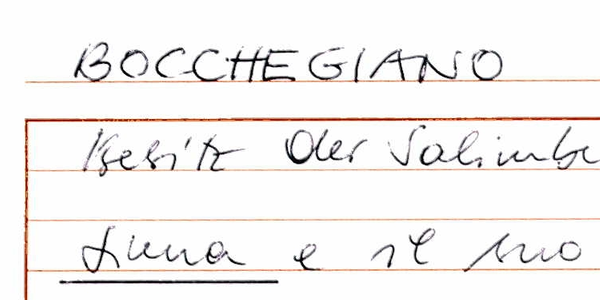 BOCCHEGIANO
Besitz der Salimbe
Siena e il suo